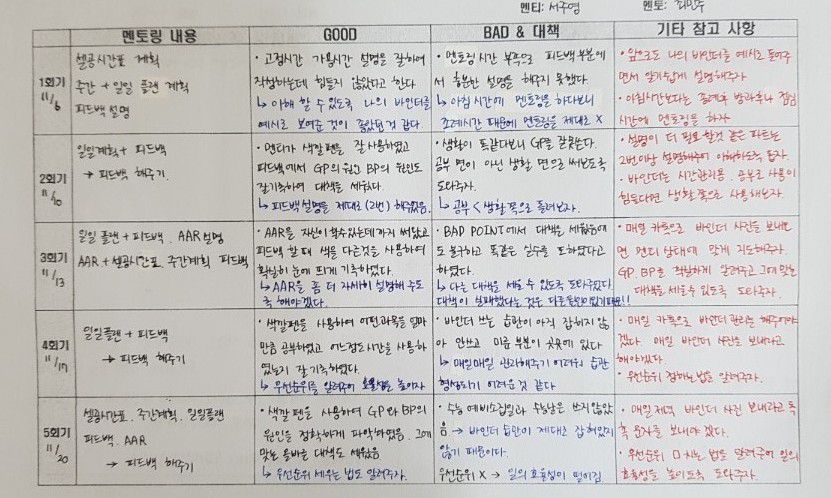 멘티: 서수영 멘토:
멘토링 내용 GOOD BAD & 대책 기타 참고 사항
1회기
11/6
셀공시간표 계획
주간 + 일일 플랜 계획
피드백 설명
· 고정시간 가용시간 설명을 잘하여
작성하는데 힘들지 않았다고 한다
↳ 이해 할 수 있도록 나의 바인더를
예시로 보여준 것이 좋았던 것 같다
· 멘토링 시간 부족으로 피드백 부분에
서 충분한 설명을 해주지 못했다
↳ 아침 시간에 멘토링을 하다보니
조례시간 때문에 멘토링을 제대로 X
· 앞으로도 나의 바인더를 예시로 들어주
면서 알기쉽게 설명해주자
· 아침시간보다는 종례후 방과후나 점심
시간에 멘토링을 하자
2회기
11/10
일일계획 + 피드백
→ 피드백 해주기
· 멘티가 색깔펜을 잘 사용하였고
피드백에서 GP의 원인 BP의 원인도
잘 기록하여 대책을 세웠다
↳ 피드백 설명을 제대로 (2번) 해주었음.
· 생활이 똑같다보니 GP를 잘 못쓴다.
공부 면이 아닌 생활 면으로 써보도록
도와주자.
↳ 공부 < 생활 쪽으로 돌려보자.
· 설명이 더 필요할것 같은 파트는
2번이상 설명해주어 이해하도록 돕자.
· 바인더는 시간관리용. 공부로 사용이
힘들다면 생활 쪽으로 사용해보자
3회기
11/13
일일 플랜 + 피드백. AAR 설명
AAR + 셀공시간표. 주간계획 피드백
· AAR을 자신이 할수있는데 까지 써왔고
피드백 할 때 색을 다른것을 사용하여
확실히 눈에 띄게 기록하였다.
↳ AAR을 좀 더 자세히 설명해 주도
록 해야겠다.
· BAD POINT에서 대책을 세웠음에
도 불구하고 똑같은 실수를 또하였다고
하였다.
↳ 다른 대책을 세울 수 있도록 도와주었다.
대책이 실패했다는 것은 다른 방법이 있기 때문!!
· 매일 카톡으로 바인더 사진을 보내오
면 멘티 상태에 맞게 지도해주자.
GP. BP를 적절하게 알려주고 그에 맞는
대책을 세울수 있도록 도와주자.
4회기
11/17
일일플랜 + 피드백
→ 피드백 해주기
· 색깔펜을 사용하여 어떤과목을 얼마
만큼 공부하였고 어느정도시간을 사용하
였는지 잘 기록하였다.
↳ 우선순위를 알려주어 효율성을 높이자
· 바인더 쓰는 습관이 아직 잡히지 않
아 안쓰고 미룬 부분이 곳곳에 있다
↳ 매일매일 관리해주기 어려워 습관
형성되기 어려운 것 같다
· 매일 카톡으로 바인더 관리를 해주어야
겠다. 매일 바인더 사진을 보내라고
해야겠다.
· 우선순위 정하는법을 알려주자.
5회기
11/20
셀공시간표. 주간계획. 일일플랜
피드백. AAR
→ 피드백 해주기
· 색깔 펜을 사용하여 GP와 BP의
원인을 정확하게 파악하였음. 그에
맞는 올바른 대책도 세웠음
↳ 우선순위 세우는 법도 알려주자.
· 수능 예비소집일과 수능날은 쓰지 않았
음 → 바인더 습관이 제대로 잡혀있지
않기 때문이다.
우선순위 X → 일의 효율성이 떨어짐
· 매일 저녁 바인더 사진 보내라고 독
촉 문자를 보내야 겠다.
· 우선순위 매기는 법을 알려주어 일의
효율성을 높이도록 도와주자.